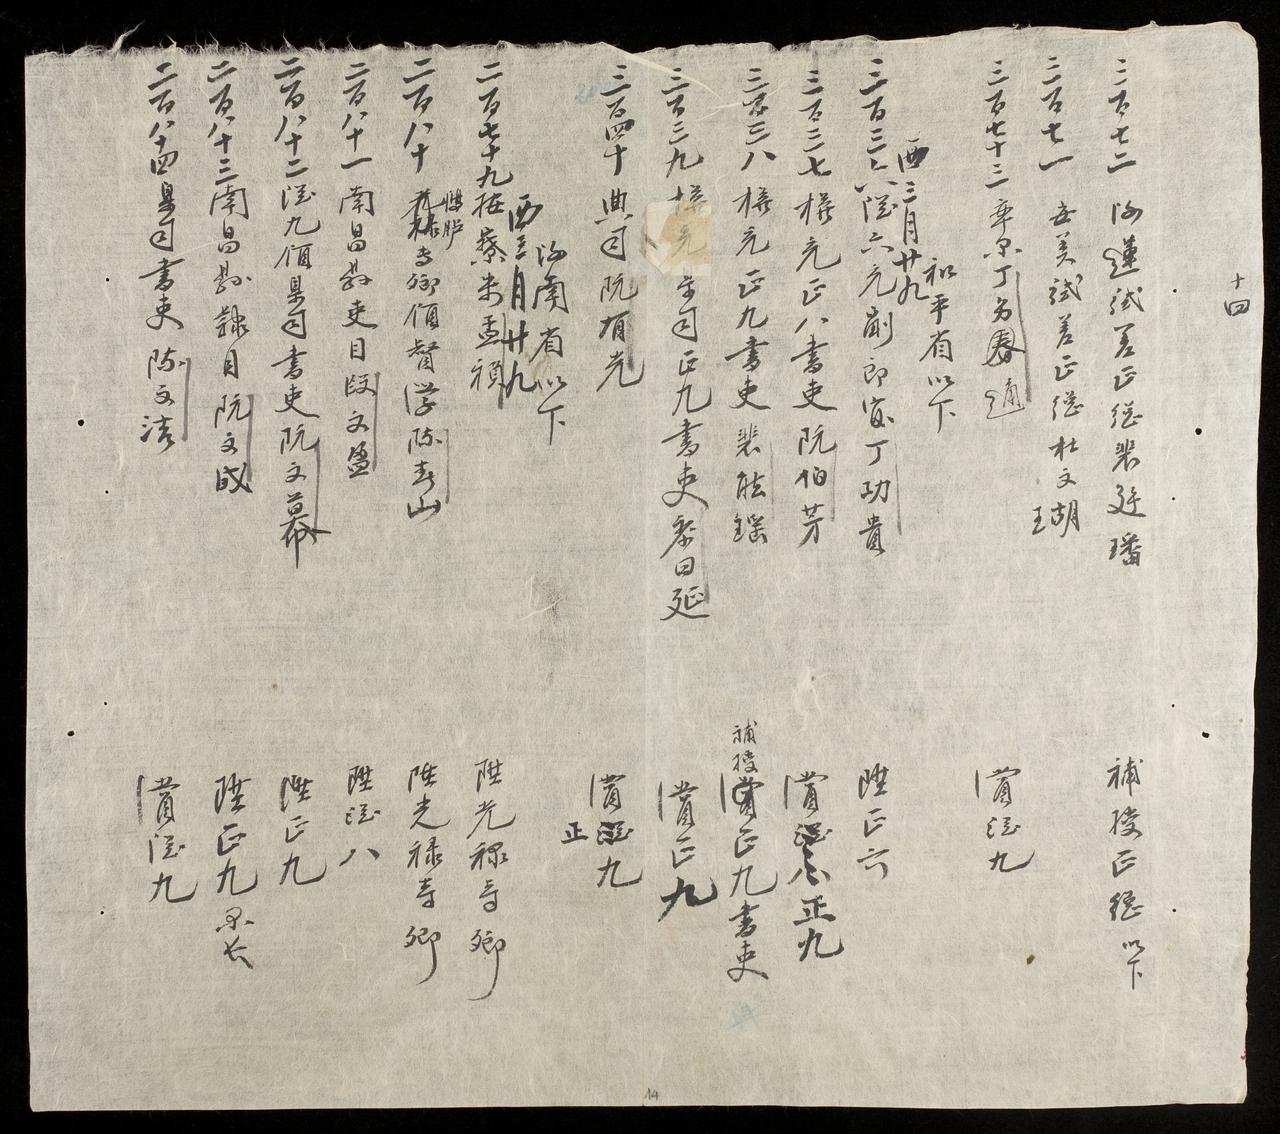 十四
三百七二 沙蓮試差正總裴廷璠 補授正總以下
三百七一 安美試差正總杜文瑚
三百七十三 率隊丁多春 通 賞從九
和平省以下
西三月廿九
三百三六 從六充副郎官丁功貴 陞正六
三百三七 樣充正八書吏阮伯芳 賞 正九
三百三八 樣充正九書吏裴 瑤 補授 賞正九書吏
三百三九 樣充 司正九書吏黎曰延 賞正九
三百四十 典司阮有光 賞從九 正
河南省以下
西三月廿九
二百七十九 按察朱孟禎 陞光祿寺卿
二百八十 鴻臚 光祿寺卿領督學陳春山 陞光祿寺卿
二百八十一 南昌縣吏目段文盈 陞從八
二百八十二 從九領臬司書吏阮文幕 陞正九
二百八十三 南昌縣隸目阮文成 陞正九隊長
二百八十四 臬司書吏陳文洁 賞從九
14